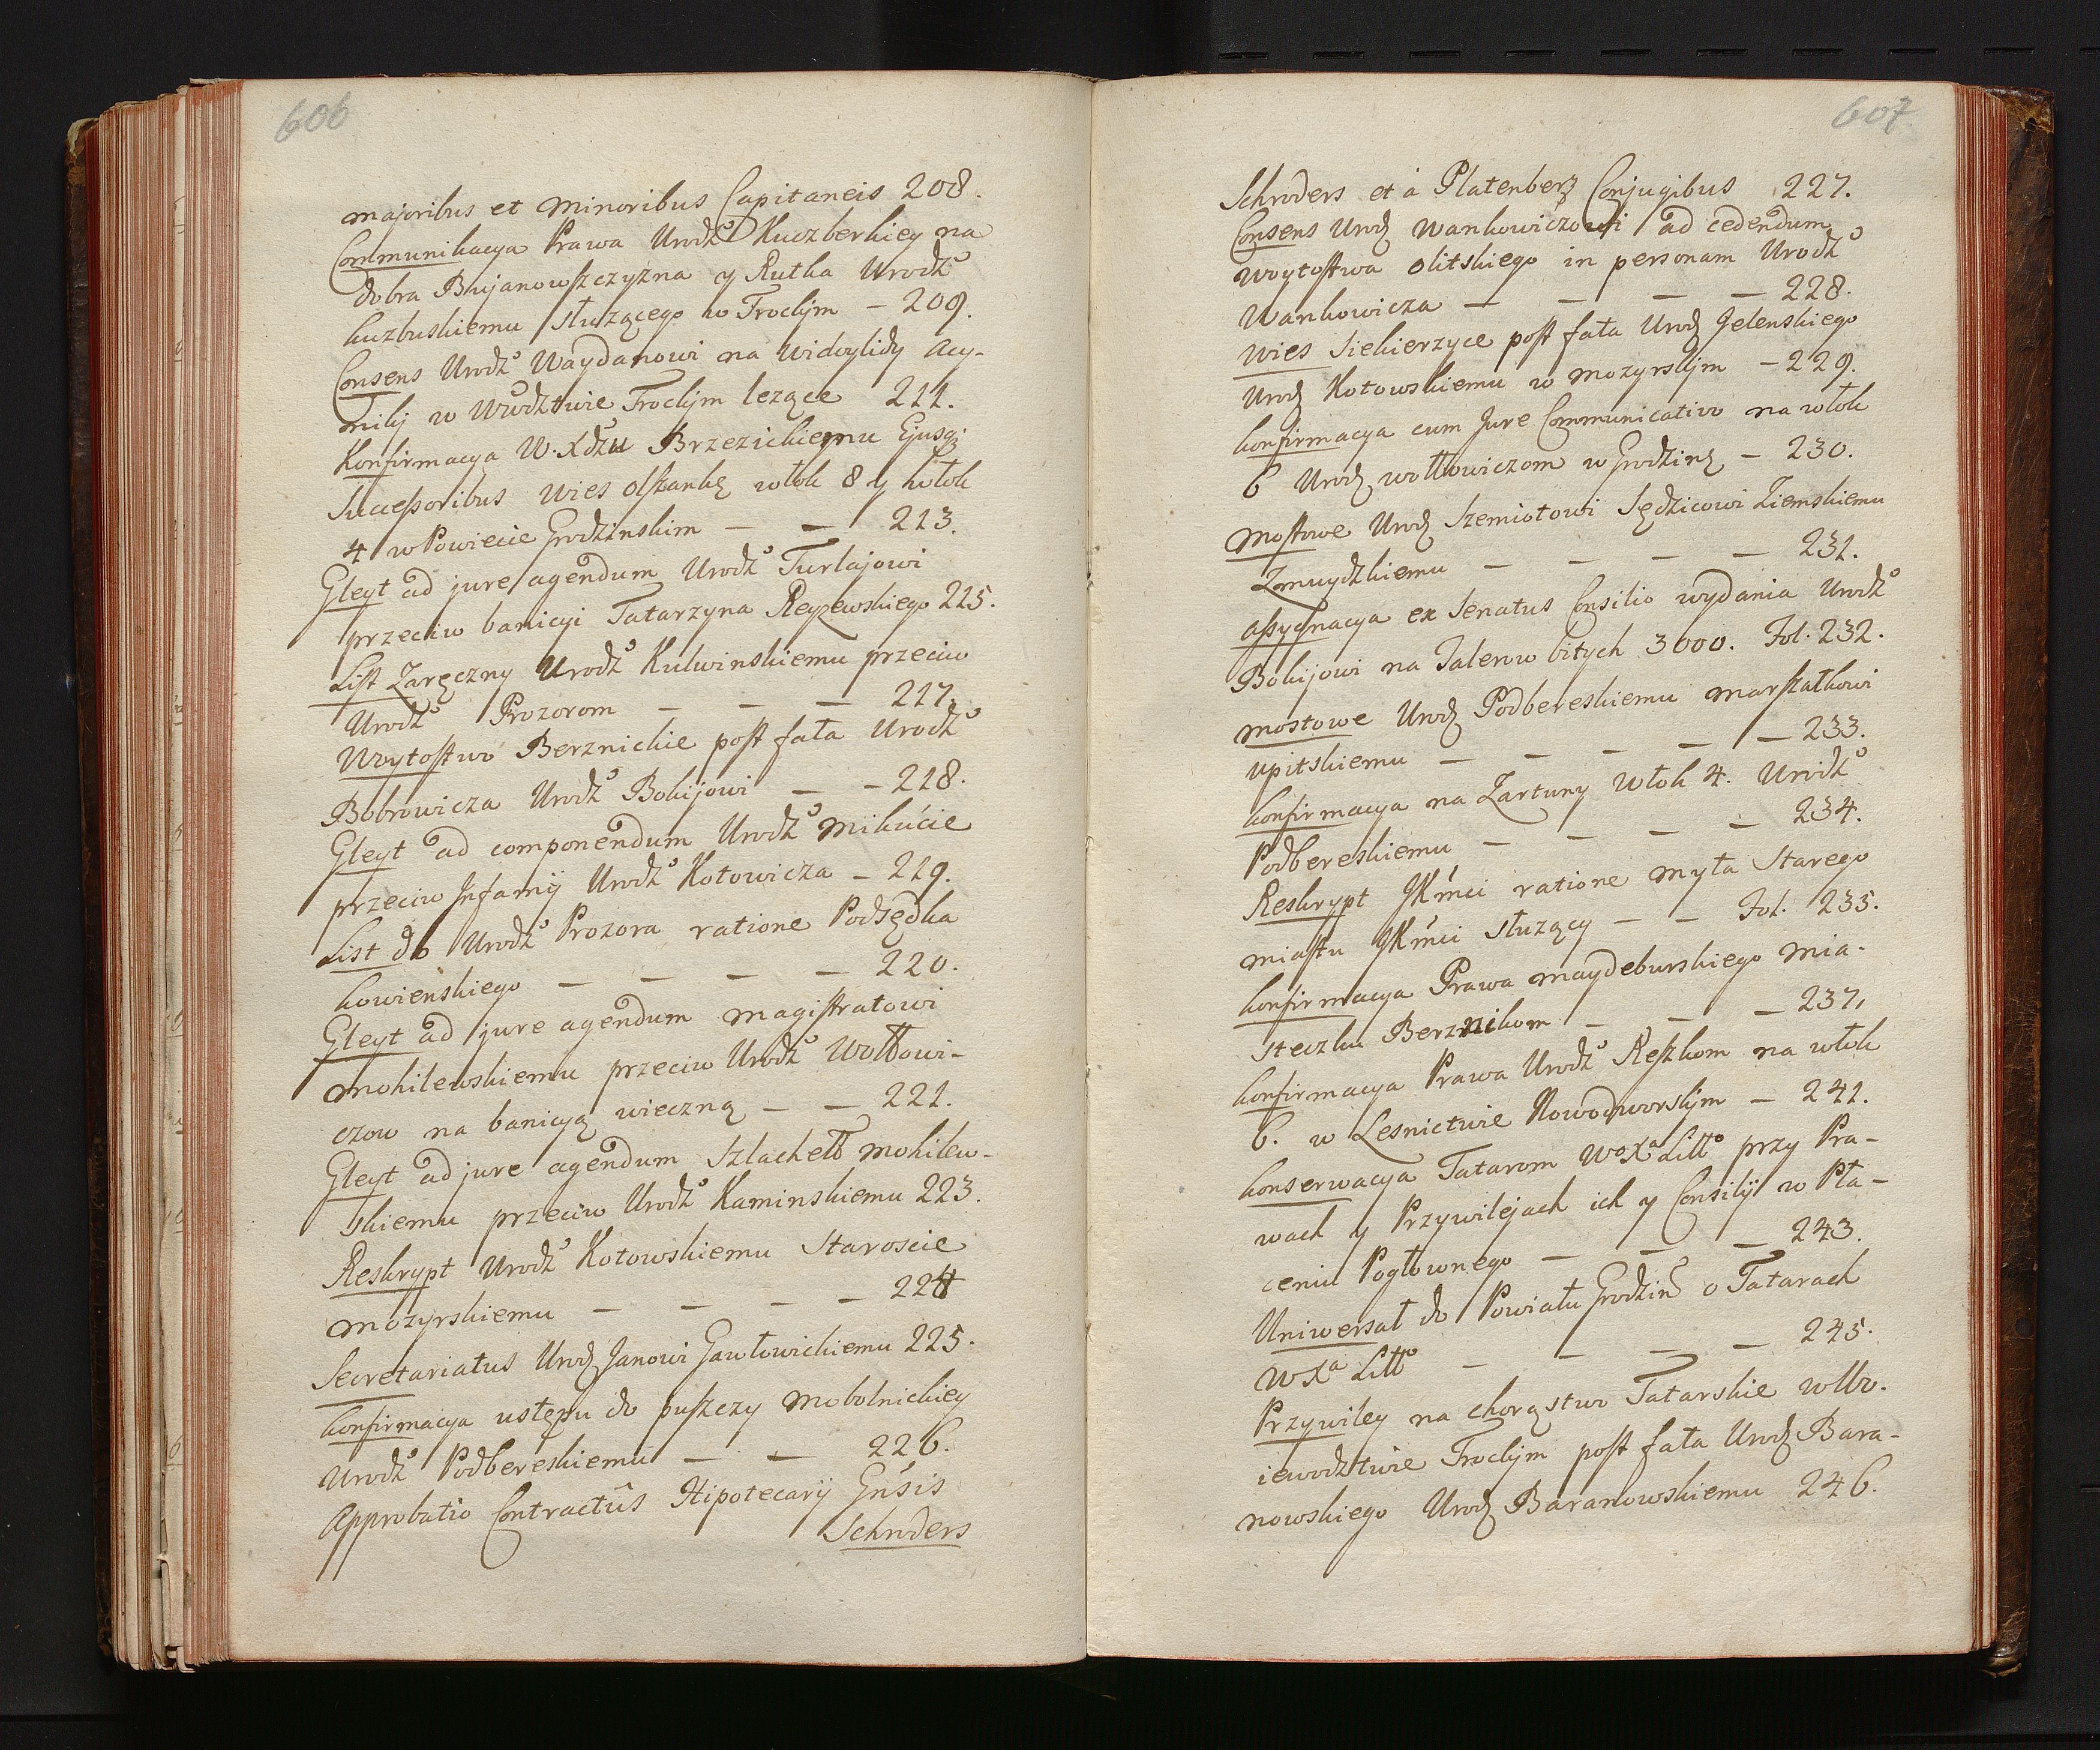 606
majoribus et Minoribus Capitaneis 208.
Communikacya Prawa Urodz° Kuczberkiey na
dobra Bujanowszczyzna y Rutka Urodz°
kuzbuskiemu służącego w Trockjm – 209.
Consens Urodz° Waydanowi na Widoylidy Acy-
nikj w Wůdztwie Trockjm lezące 211.
Konfirmacya W. Xdzu Brzezickiemu Ejusq;
Sucessoribus Wies olszankę włok 8 y włok
4 w Powiecie Grodzinskim – – 213.
Gleyt ad jure agendum Urodz° Turłajowi
przeciw banicyi Tatarzyna Reyzewskiego 215.
List Zaręczny Urodz° Kulwinskiemu przeciw
Urodz° Prozorom – – – 217.
Woytostwo Berznickie post fata Urodz°
Bobrowicza Urodz° Bokijowi – – 218.
Gleyt ad componendum Urodz° Mikućie
przeciw Infamij Urodz° Kotowicza – 219.
List do Urodz° Prozora ratione Podsędka
kowienskiego – – – – 220.
Gleyt ad jure agendum Magistratowi
Mohilewskiemu przeciw Urodz° Wołłowi-
czow na banicyą wieczną – – 221.
Gleyt ad jure agendum Szlachett Mohilew-
skiemu przeciw Urodz° Kaminskiemu 223.
Reskrypt Urodz° Kotowskiemu Staroscie
Mozyrskiemu – – – – 224
Secretariatus Urodz Janowi Gawłowickiemu 225.
konfirmacya ustępu do puszczy Mobolnickiey
Urodz° Podbereskiemu – – 226.
Approbatio Contractûs Hipotecarij Gńsis
Schroders
607
Schroders et à Platenberg Conjugibus 227.
Consens Urodz Wankowiczowi ad cedendum
Woytostwa olitskiego in personam Urodz°
Wankowicza – – – – 228.
Wies Siekierzyce post fata Urodz Jelenskiego
Urodz Kotowskiemu w Mozyrskjm – 229.
konfirmacya cum Jure Communicativo na włok
6 Urodz wołłowiczom w Grodzinz – 230.
Mostowe Urodz Szemiotowi Sędzicowi Ziemskiemu
Zmuydzkiemu – – – – 231.
assygnacya ex Senatus Consilio wydania Urodz°
Bokijowi na Talerow bitych 3000. Fol. 232.
mostowe Urodz Podbereskiemu Marszałkowi
upitskiemu – – – – – 233.
konfirmacya na Zartuny Włok 4. Urodz°
Podbereskiemu – – – – 234.
Reskrypt JKmci ratione Myta Starego
miastu JKmci Służący – – Fol. 235.
konfirmacya Prawa Maydeburskiego Mia-
steczku Berznikom – – – 237,
konfirmacya Prawa Urodz° Reszkom na włok
6. w Lesnictwie Nowodworskjm – 241.
konserwacya Tatarom W°Xª Litt° przy Pra-
wach y Przywilejach ich y Consilij w Pła-
ceniu Pogłownego – – – 243.
Uniwersał do Powiatu Grodzinˢ o Tatarach
WXª Litt° – – – – 245.
Przywiley na chorąstwo Tatarskie w Wo-
iewodztwie Trockjm post fata Urodz Bara-
nowskiego Urodz Baranowskiemu 246.